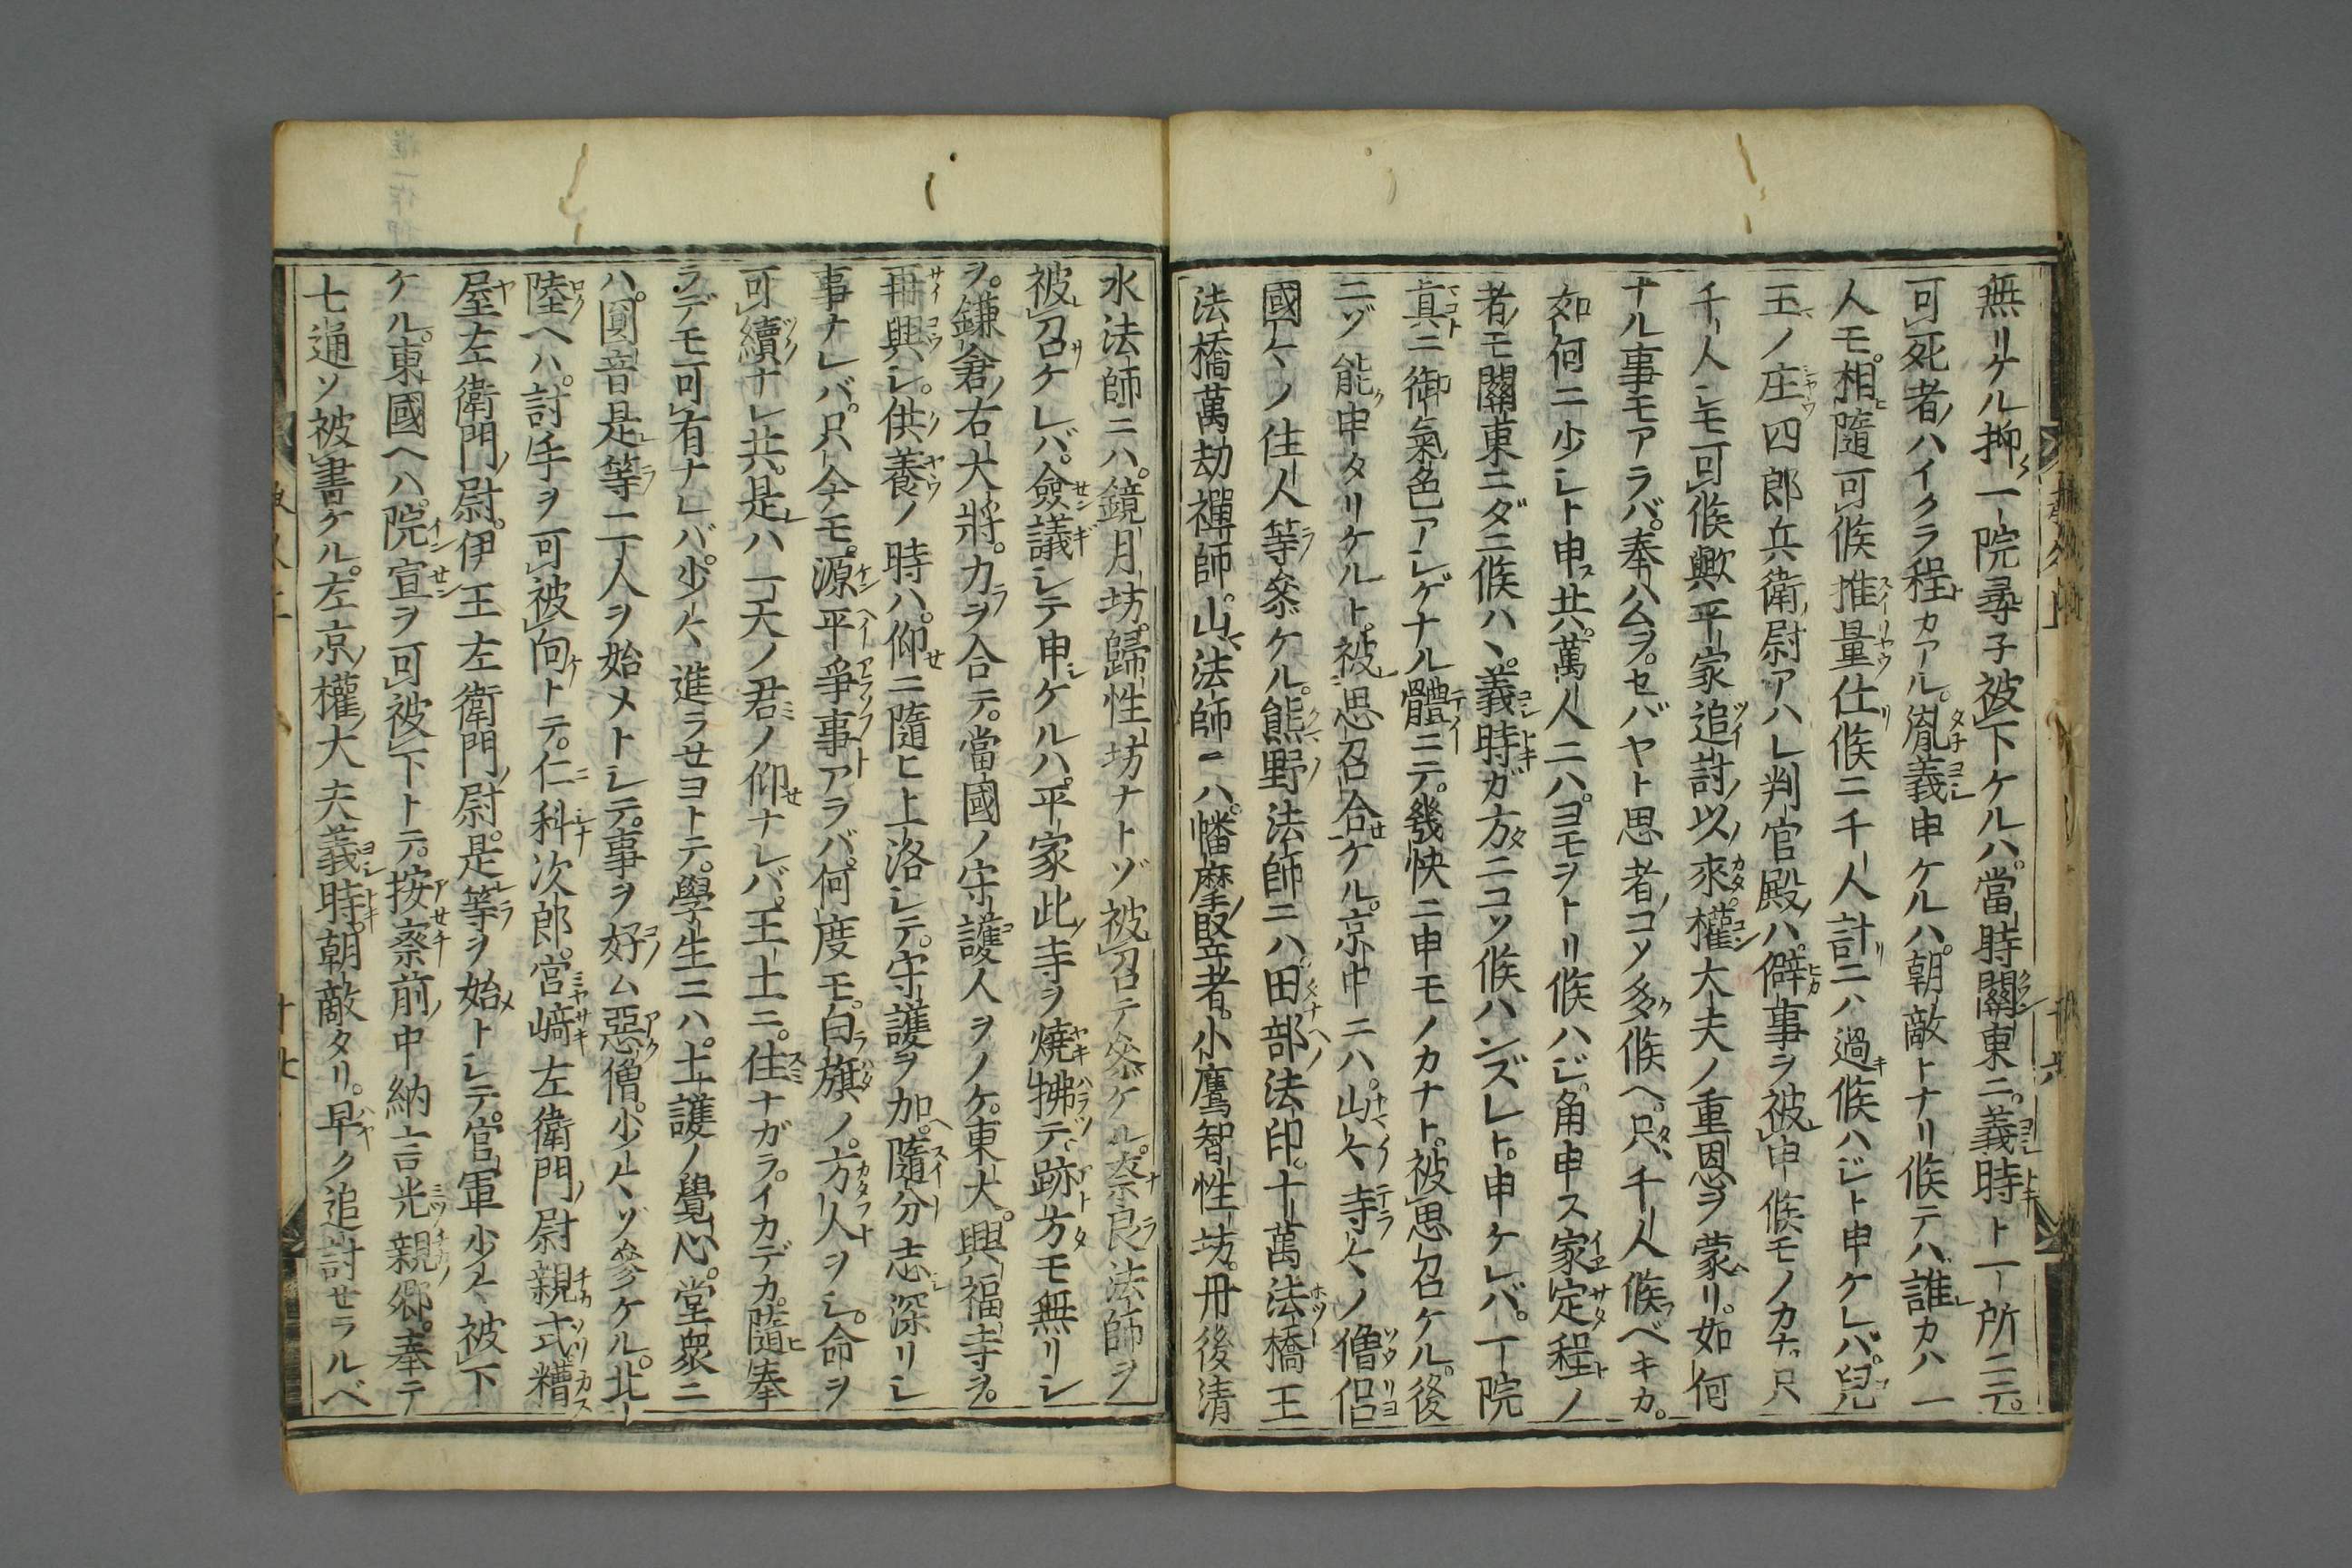 無リケル抑一院尋子被下ケルハ。當時關東ニ。義時ト一所ニテ。
可死者ハイクラ程カアル。胤義申ケルハ。朝敵トナリ候テハ誰カハ一
人モ。相隨可候推量仕候ニ千人計ニハ過候ハジト申ケレバ。兒
玉ノ庄四郎兵衛尉アハレ判官殿ハ。僻事ヲ被申候モノカナ。只
千人シモ可候歟平家追討以來。權大夫ノ重恩ヲ蒙リ。如何
ナル事モアラバ。奉ハムヲセバヤト思者コソ多候ヘ。只千人候ベキカ。
如何ニ少シト申共。萬人ニハ。ヨモヲトリ候ハジ。角申ス家定程ノ
者モ關東ニダニ候ハヽ。義時ガ方ニコソ候ハンズレト。申ケレバ。一院
真ニ御氣色アシゲナル體ニテ。幾快ニ申モノカナト。被思召ケル。後
ニゾ能申タリケルト。被思召合ケル。京中ニハ。山々寺々ノ僧侶
國々ノ住人等參ケル。熊野法師ニハ。田部法印。十萬法橋王
法橋萬劫禪師。山法師ニハ。幡摩堅者。小鷹智性坊。丹後清
水法師ニハ。鏡月坊。歸性坊ナトゾ被召テ參ケル。奈良法師ヲ
被召ケレバ。僉議シテ申ケルハ。平家此寺ヲ燒拂テ跡方モ無リシ
ヲ。鎌倉右大將。力ヲ合テ。當國ノ守護人ヲノケ。東大。興福寺ヲ。
再興シ。供養ノ時ハ。仰ニ隨ヒ上洛シテ。守護ヲ加。隨分志深リシ
事ナレバ。只今モ。源平爭事アラバ。何度モ。白旗ノ。方人ヲシ。命ヲ
可續ナレ共。是ハ一天ノ君ノ仰ナレバ。王土ニ。住ナガラ。イカデカ。隨奉
ラデモ可有ナレバ。少々進ラセヨトテ。學生ニハ。土護ノ覺心。堂衆ニ
ハ。圓音是等二人ヲ始メトシテ。事ヲ好ム惡僧。少々ゾ參ケル。北
陸ヘハ。討手ヲ可被向トテ。仁科次郎。宮﨑左衛門尉親式糟
屋左衛門尉。伊王左衛門尉。是等ヲ始トシテ。官軍少々被下
ケル。東國ヘハ。院宣ヲ可被下トテ。按察前中納言光親郷。奉テ
七通ソ被書ケル。左京權大夫義時。朝敵タリ。早ク追討セラルベ